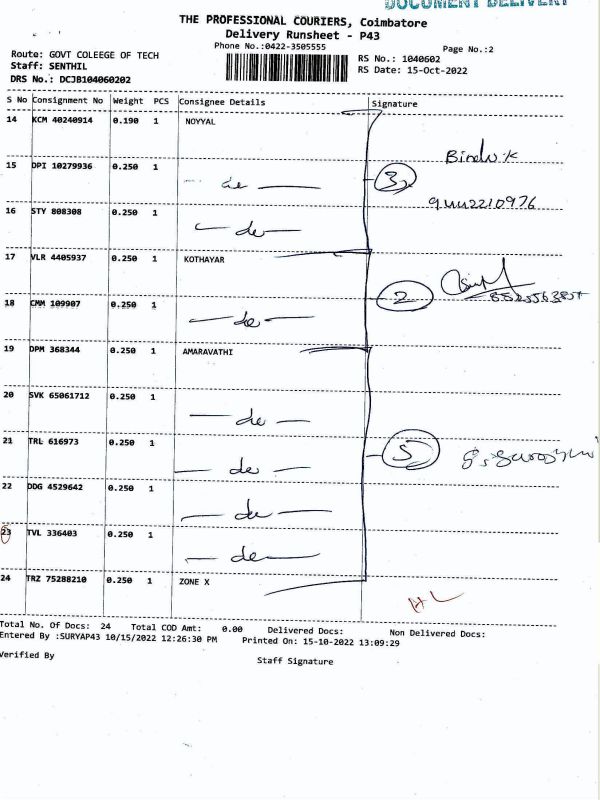 DOCUMENT DELIVERY
THE PROFESSIONAL COURIERS, Coimbatore
Delivery Runsheet - P43
Phone No.:0422-3505555
Page No.:2
Route: GOVT COLEEGE OF TECH
RS No.: 1040602
Staff: SENTHIL
RS Date: 15-Oct-2022
DRS No.: DCJB104060202
S No Consignment No Weight PCS Consignee Details Signature
14 KCM 40240914 0.190 1 NOYYAL
Bindu.K
15 DPI 10279936 0.250 1 do 3
16 STY 808308 0.250 1 do
17 VLR 4405937 0.250 1 KOTHAYAR
2
18 CMM 109907 0.250 1 do
19 DPM 368344 0.250 1 AMARAVATHI
20 SVK 65061712 0.250 1 do
21 TRL 616973 0.250 1 do 5
22 DDG 4529642 0.250 1 do
23 TVL 336403 0.250 1 do
24 TRZ 75288210 0.250 1 ZONE X
Total No. Of Docs: 24 Total COD Amt: 0.00 Delivered Docs: Non Delivered Docs:
Entered By :SURYAP43 10/15/2022 12:26:30 PM Printed On: 15-10-2022 13:09:29
Verified By
Staff Signature